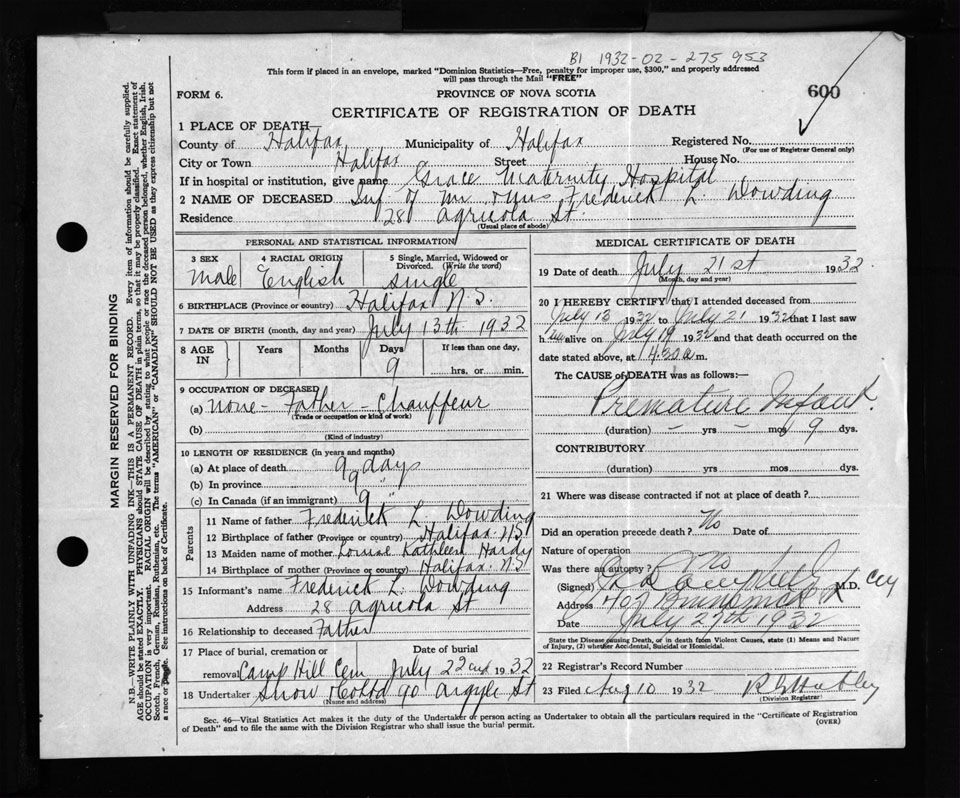 B1 1932-02-275 953
This form if placed in an envelope, marked "Dominion Statistics—Free, penalty for improper use, $300," and properly addressed
will pass through the Mail "FREE"
FORM 6.
PROVINCE OF NOVA SCOTIA
600
CERTIFICATE OF REGISTRATION OF DEATH
1 PLACE OF DEATH—
County of Halifax Municipality of Halifax Registered No.
(For use of Registrar General only)
City or Town Halifax Street House No.
If in hospital or institution, give name Grace Maternity Hospital
2 NAME OF DECEASED Inf of Mr & Mrs Frederick L. Dowding
Residence 28 Agricola St.
(Usual place of abode)
PERSONAL AND STATISTICAL INFORMATION
3 SEX Male
4 RACIAL ORIGIN English
5 Single, Married, Widowed or Divorced. (Write the word) Single
6 BIRTHPLACE (Province or country) Halifax N.S.
7 DATE OF BIRTH (month, day and year) July 13th 1932
8 AGE IN Years Months Days If less than one day,
9 hrs. or min.
9 OCCUPATION OF DECEASED
(a) None - Father - Chauffeur
(Trade or occupation or kind of work)
(b)
(Kind of industry)
10 LENGTH OF RESIDENCE (in years and months)
(a) At place of death 9 days
(b) In province 9 "
(c) In Canada (if an immigrant) 9 "
Parents
11 Name of father Frederick L. Dowding
12 Birthplace of father (Province or country) Halifax N.S.
13 Maiden name of mother Louise Kathleen Hardy
14 Birthplace of mother (Province or country) Halifax N.S.
15 Informant's name Frederick L. Dowding
Address 28 Agricola St
16 Relationship to deceased Father
17 Place of burial, cremation or removal Date of burial
Camp Hill Cem July 22nd 1932
18 Undertaker Snow & Co Ltd 90 Argyle St
(Name and address)
MEDICAL CERTIFICATE OF DEATH
19 Date of death July 21st 1932.
(Month, day and year)
20 I HEREBY CERTIFY that I attended deceased from
July 13 1932 to July 21 1932 that I last saw
him alive on July 19 1932 and that death occurred on the
date stated above, at 4.30 a m.
The CAUSE of DEATH was as follows:—
Premature Infant.
(duration) – yrs – mos 9 dys.
CONTRIBUTORY
(duration) yrs mos dys.
21 Where was disease contracted if not at place of death?
Did an operation precede death? No Date of
Nature of operation
Was there an autopsy? No
(Signed) M.D.
Address
Date July 27th 1932
State the Disease causing Death, or in death from Violent Causes, state (1) Means and Nature
of Injury, (2) whether Accidental, Suicidal or Homicidal.
22 Registrar's Record Number
23 Filed Aug 10 1932
(Division Registrar)
Sec. 46—Vital Statistics Act makes it the duty of the Undertaker or person acting as Undertaker to obtain all the particulars required in the "Certificate of Registration
of Death" and to file the same with the Division Registrar who shall issue the burial permit.
(OVER)
MARGIN RESERVED FOR BINDING
N.B.—WRITE PLAINLY WITH UNFADING INK—THIS IS A PERMANENT RECORD. Every item of information should be carefully supplied.
AGE should be stated EXACTLY. PHYSICIANS should STATE CAUSE OF DEATH in plain terms, so that it may be properly classified. Exact statement of
OCCUPATION is very important. RACIAL ORIGIN will be described by stating to what people or race the deceased person belonged, whether English, Irish,
Scotch, French, German, Russian, Ruthenian, etc. The terms "AMERICAN" or "CANADIAN" SHOULD NOT BE USED as they express citizenship but not
a race or people. See instructions on back of Certificate.